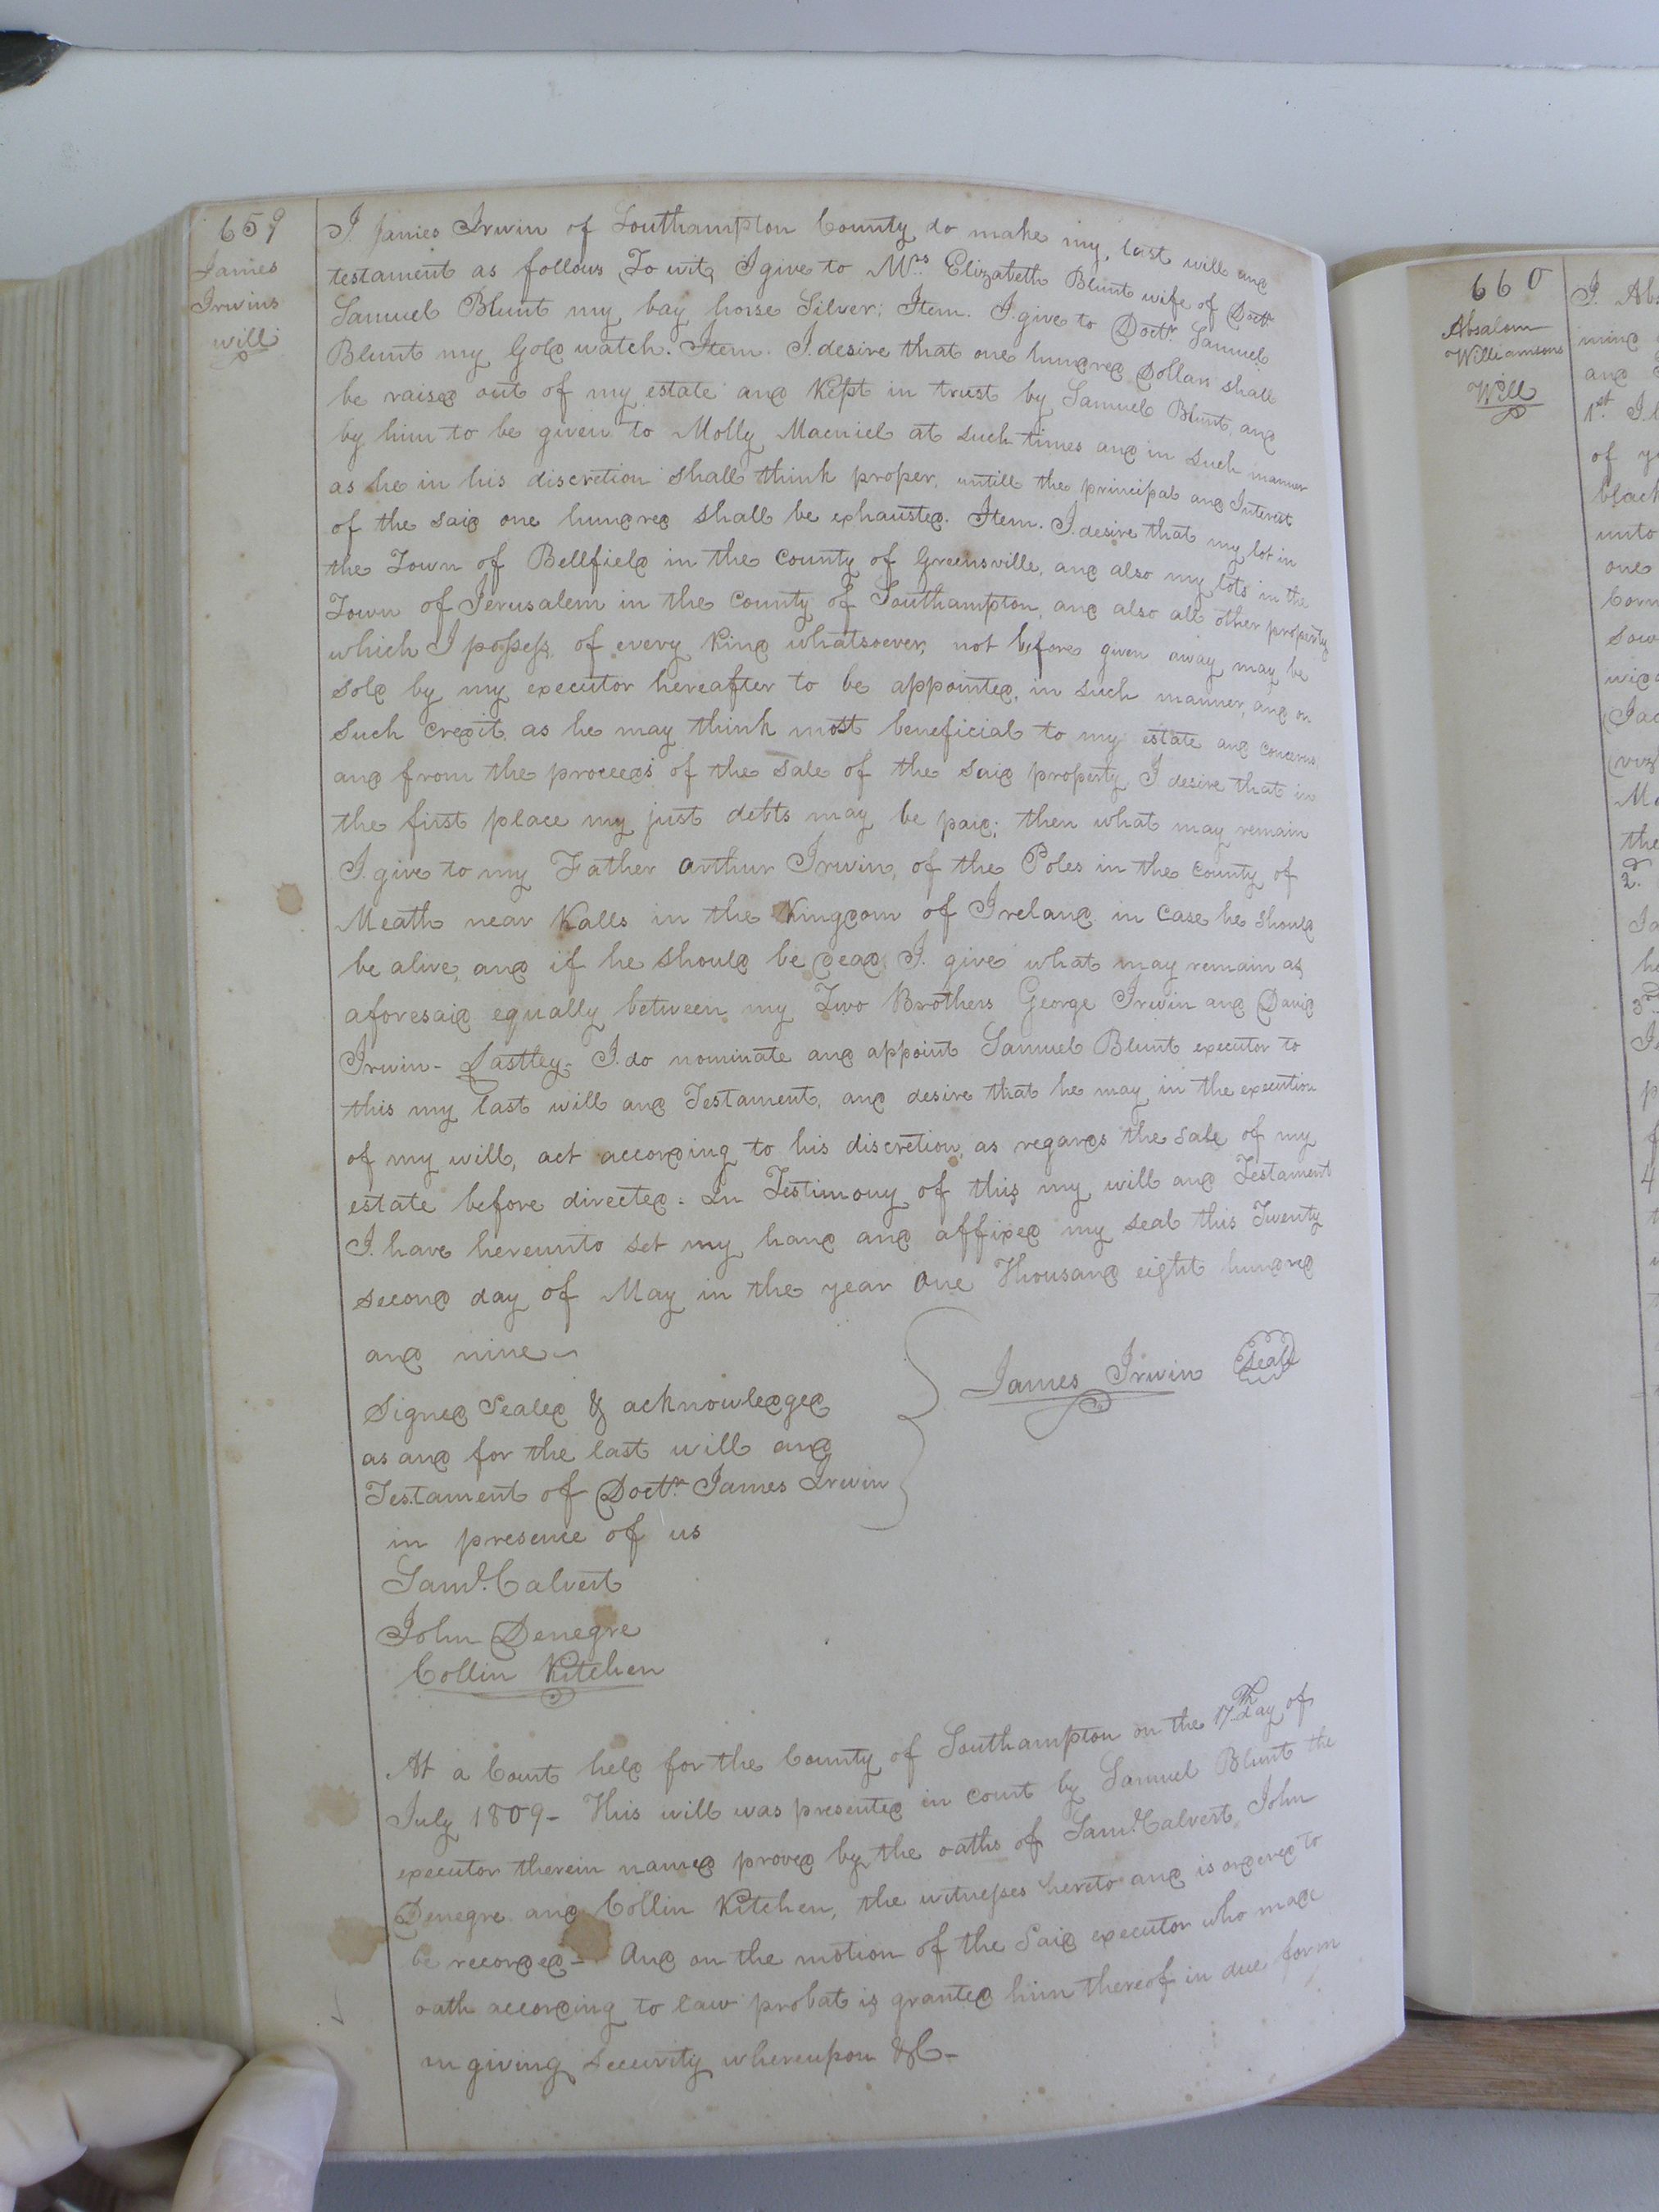 659
James
Irwins
will
I James Irwin of Southampton County do make my last will and
testament as follows To wit, I give to Mrs. Elizabeth Blunt wife of Doctr.
Samuel Blunt my bay horse Silver; Item. I give to Doctr. Samuel
Blunt my Gold watch. Item. I desire that one hundred Dollars shall
be raised out of my estate and Kept in trust by Samuel Blunt, and
by him to be given to Molly Macniel at such times and in such manner
as he in his discretion shall think proper, untill the principal and Interest
of the said one hundred shall be exhausted. Item. I desire that my lot in
the Town of Bellfield in the County of Greensville, and also my lots in the
Town of Jerusalem in the County of Southampton, and also all other property
which I possess, of every kind whatsoever, not before given away may be
sold by my executor hereafter to be appointed, in such manner, and on
such credit, as he may think most beneficial to my estate and concerns,
and from the proceeds of the sale of the said property I desire that in
the first place my just debts may be paid; then what may remain
I give to my Father Arthur Irwin, of the Poles in the County of
Meath near Kalls in the Kingdom of Ireland in case he should
be alive, and if he should be dead, I give what may remain as
aforesaid equally between my Two Brothers George Irwin and David
Irwin - Lastley - I do nominate and appoint Samuel Blunt executor to
this my last will and Testament, and desire that he may in the execution
of my will, act according to his discretion, as regards the sale of my
estate before directed. In Testimony of this my will and Testament
I have hereunto set my hand and affixed my seal this Twenty
second day of May in the year One Thousand eight hundred
and nine -
James Irwin Seal
Signed Sealed & acknowledged
as and for the last will and
Testament of Doctr. James Irwin
in presence of us
Saml. Calvert
John Denegre
Collin Kitchen
At a Court held for the County of Southampton on the 17th day of
July 1809 - This will was presented in Court by Samuel Blunt the
executor therein named proved by the oaths of Saml. Calvert, John
Denegre and Collin Kitchen, the witnesses hereto and is ordered to
be recorded - And on the motion of the said executor who made
oath according to law probat is granted him thereof in due form
on giving security whereupon &C -
660
Absalom
Williamsons
Will
I. Abs
mind
and
1st. I
of
black
unto
one